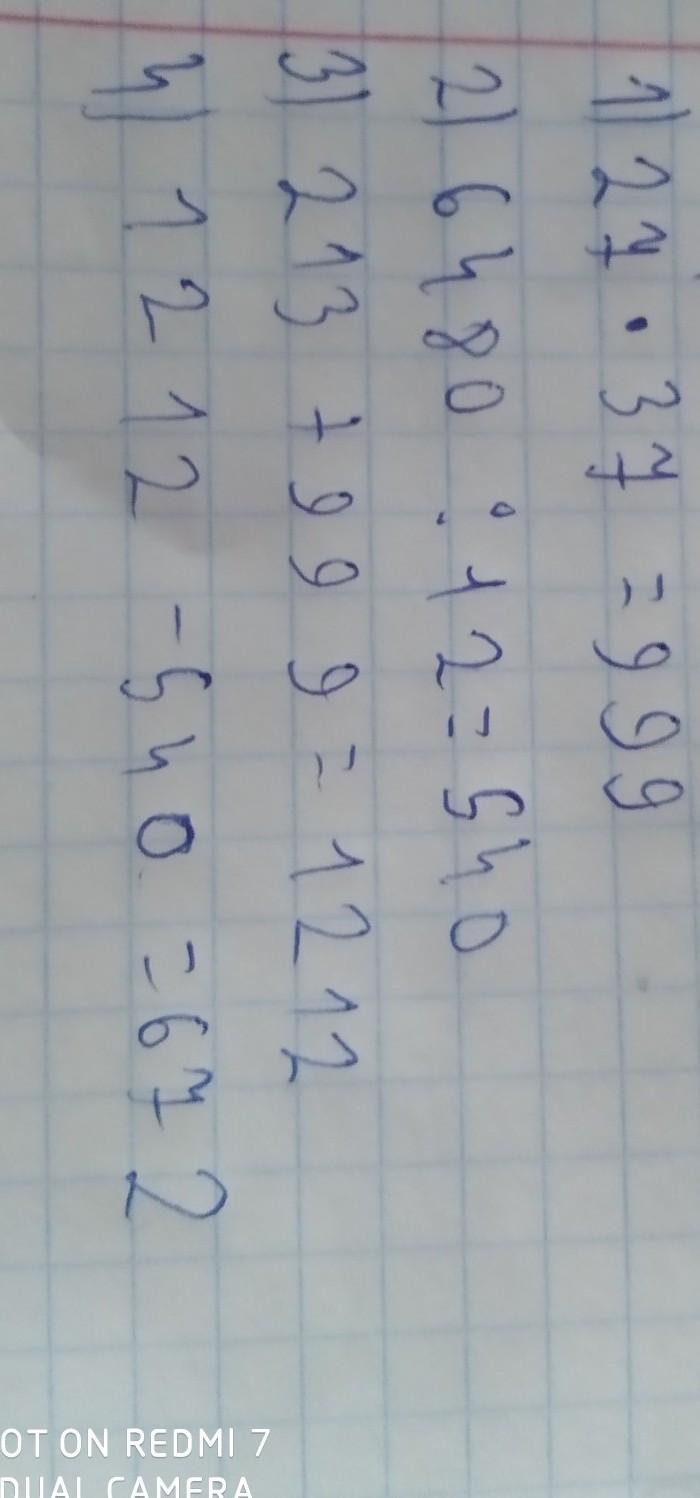 1) 27 · 37 = 999
2) 6480 : 12 = 540
3) 213 + 999 = 1212
4) 1212 - 540 = 672
OT ON REDMI 7
DUAL CAMERA